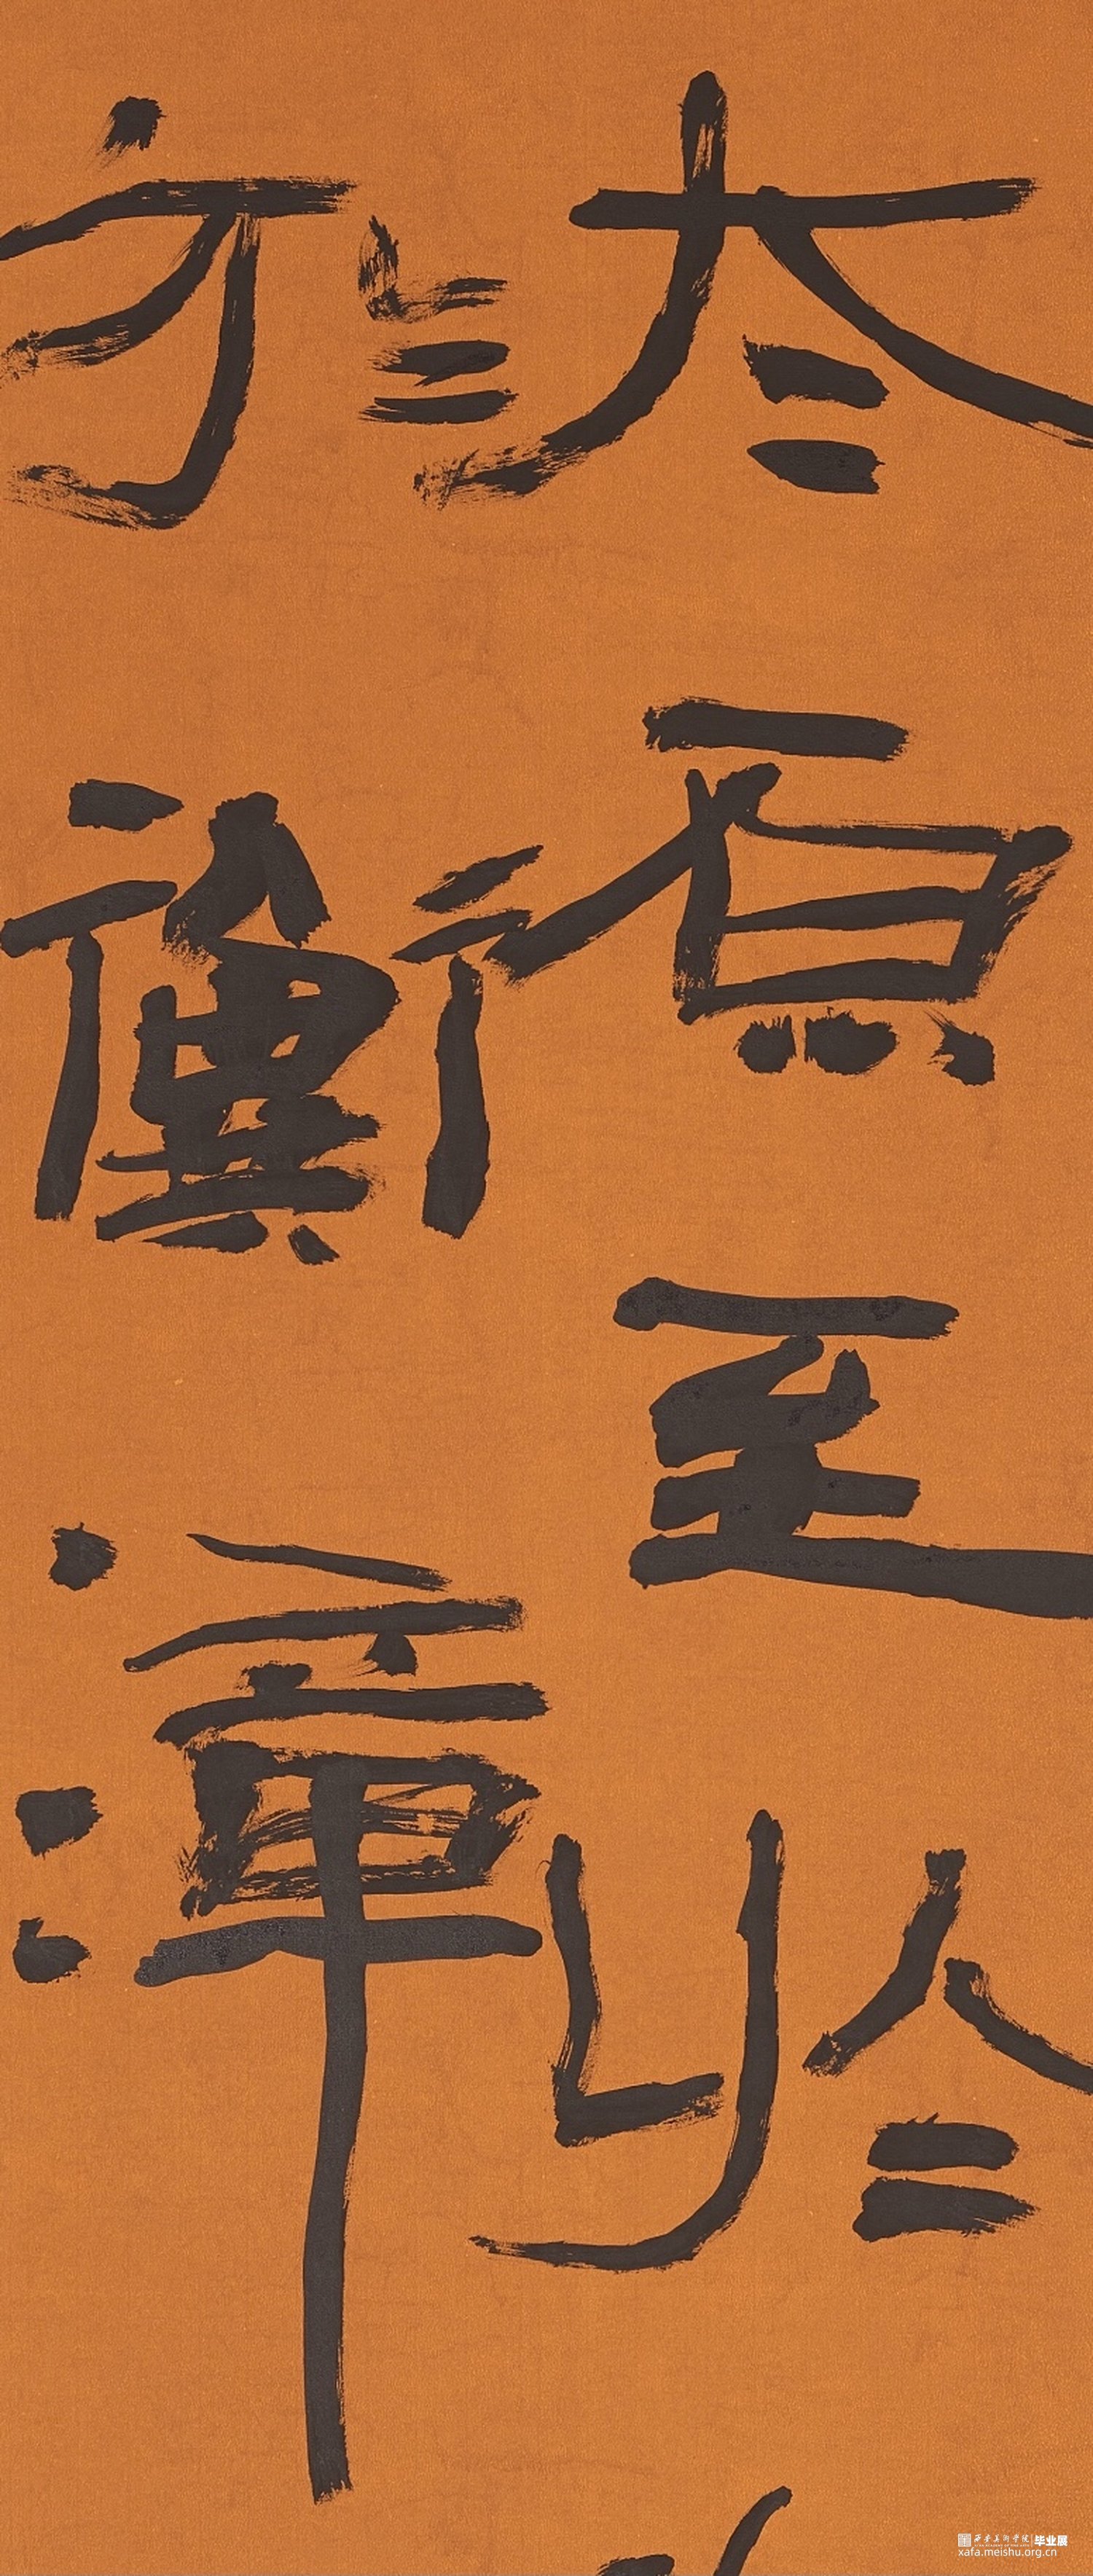 太原至於
於衡漳
西安美术学院 毕业展
xafa.meishu.org.cn